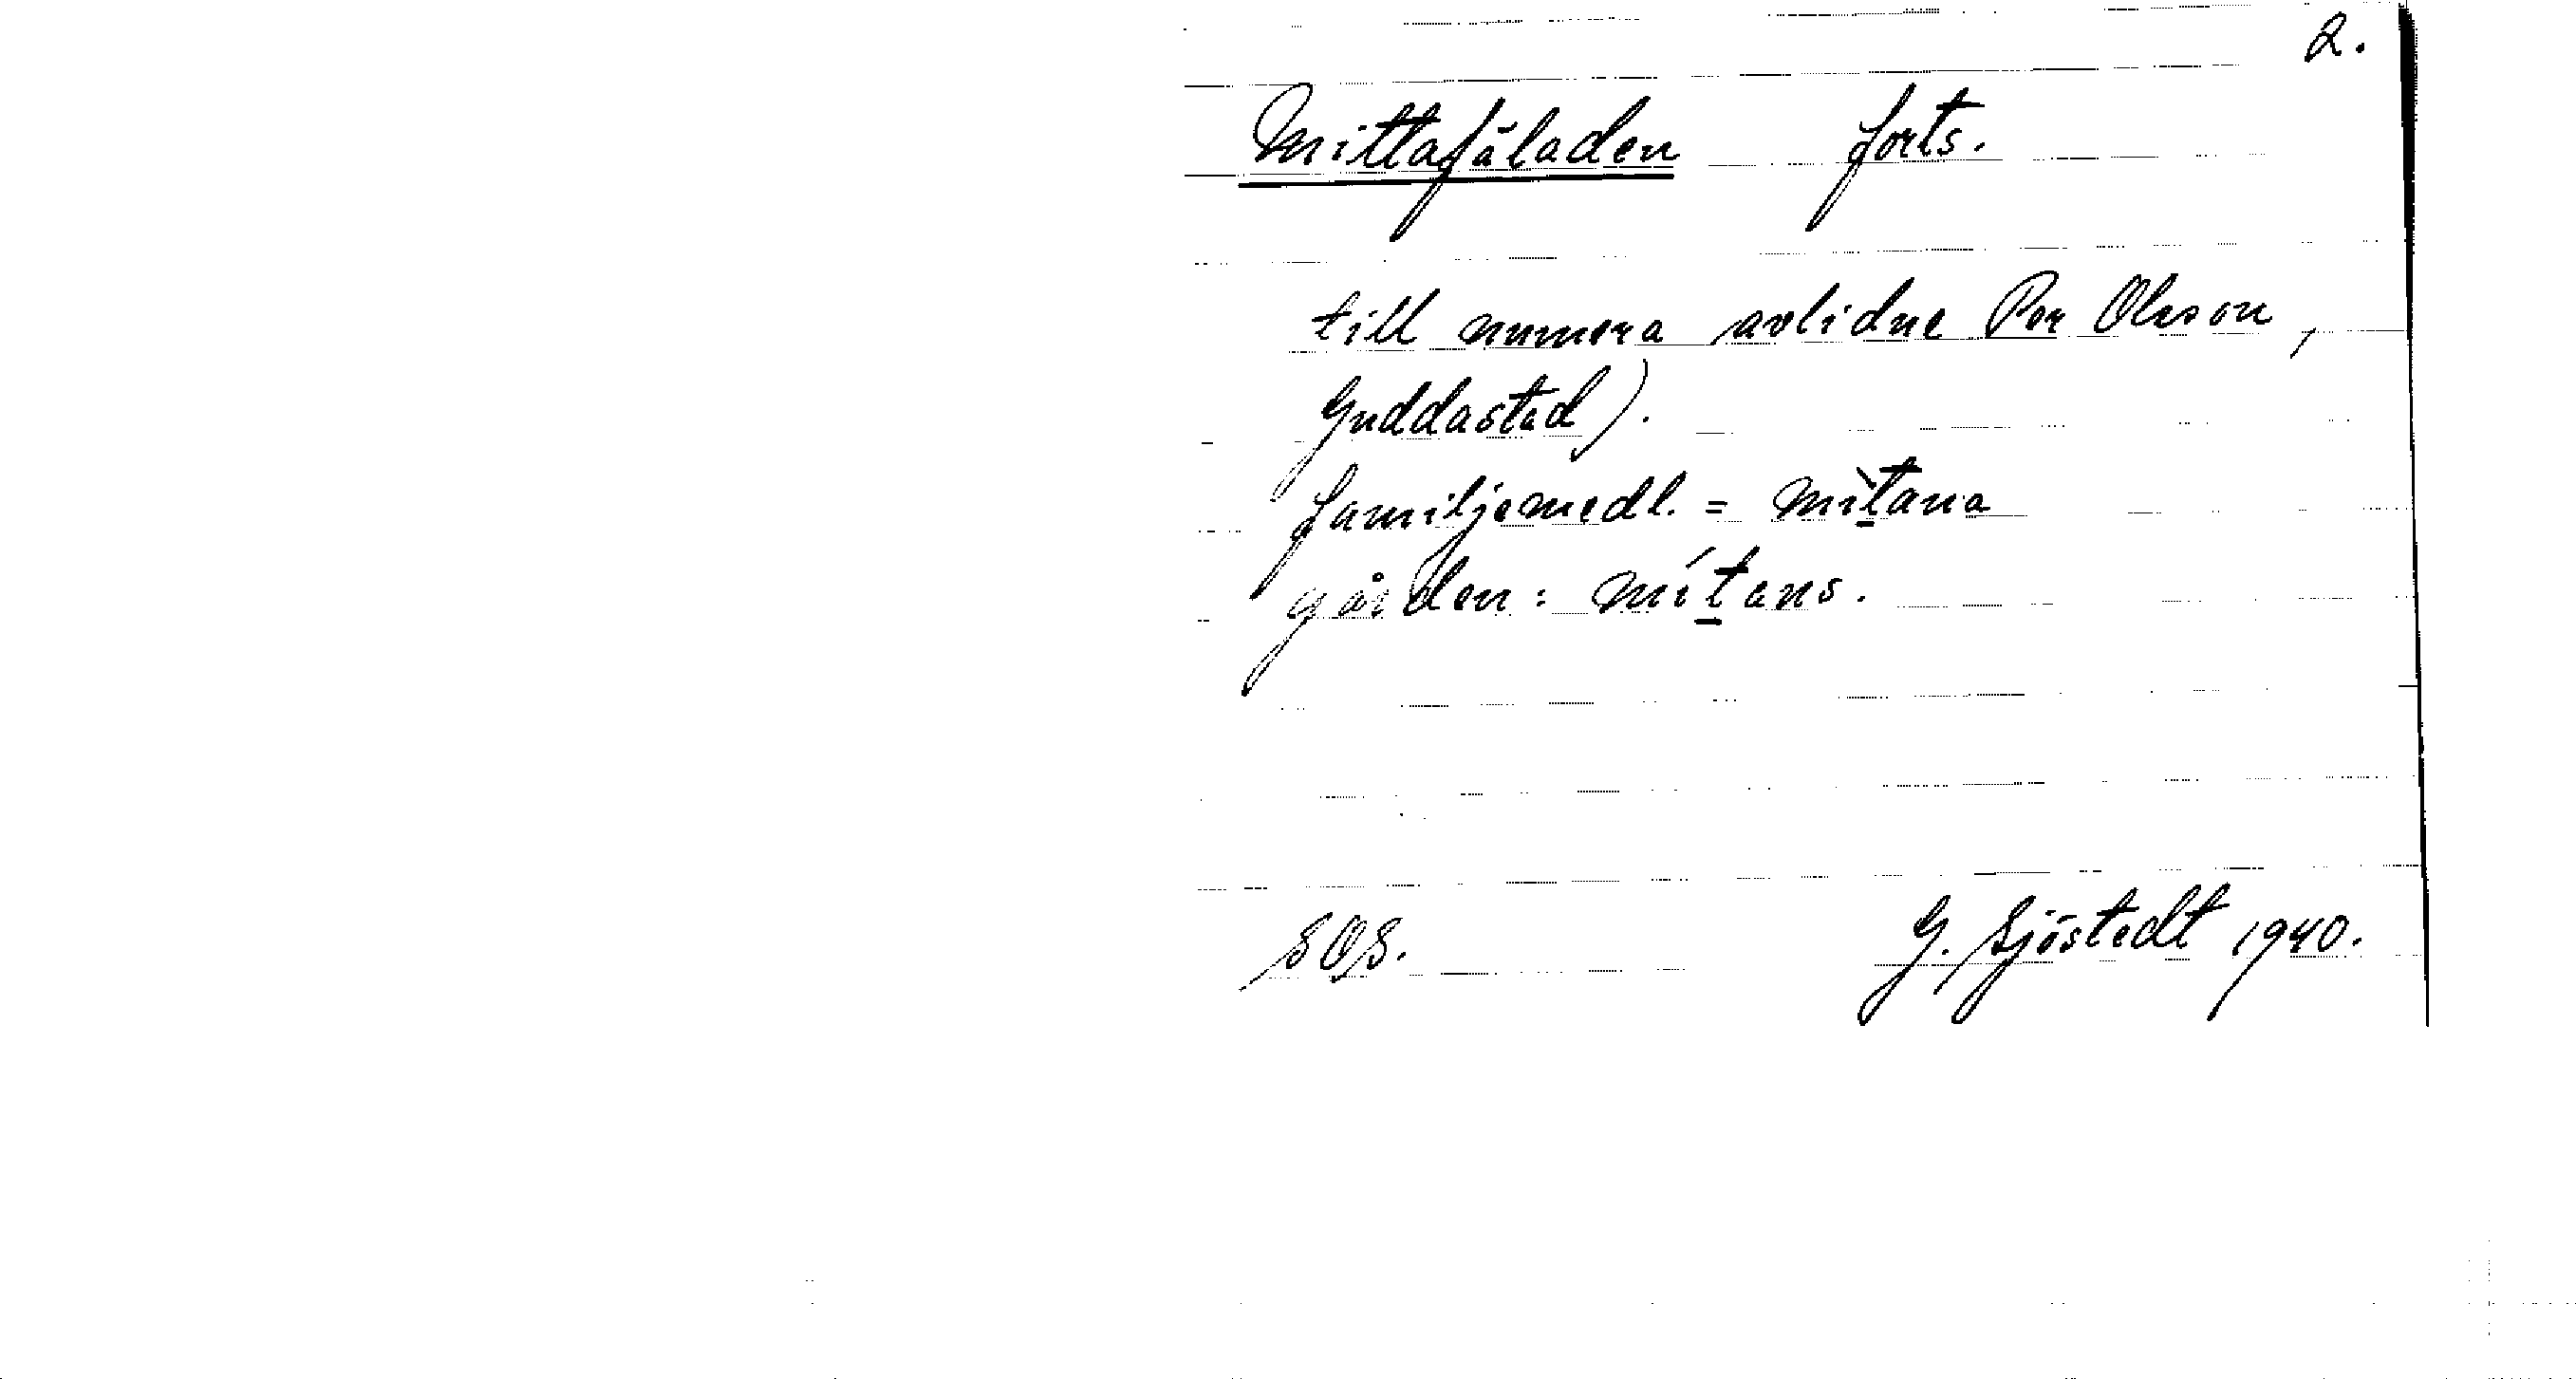 2.
Mittafäladen forts.
till numera avlidne Per Olsson,
Guddastad).
familjemedl. = mìtana
gården: mítans.
SOS.
G. Sjöstedt 1940.